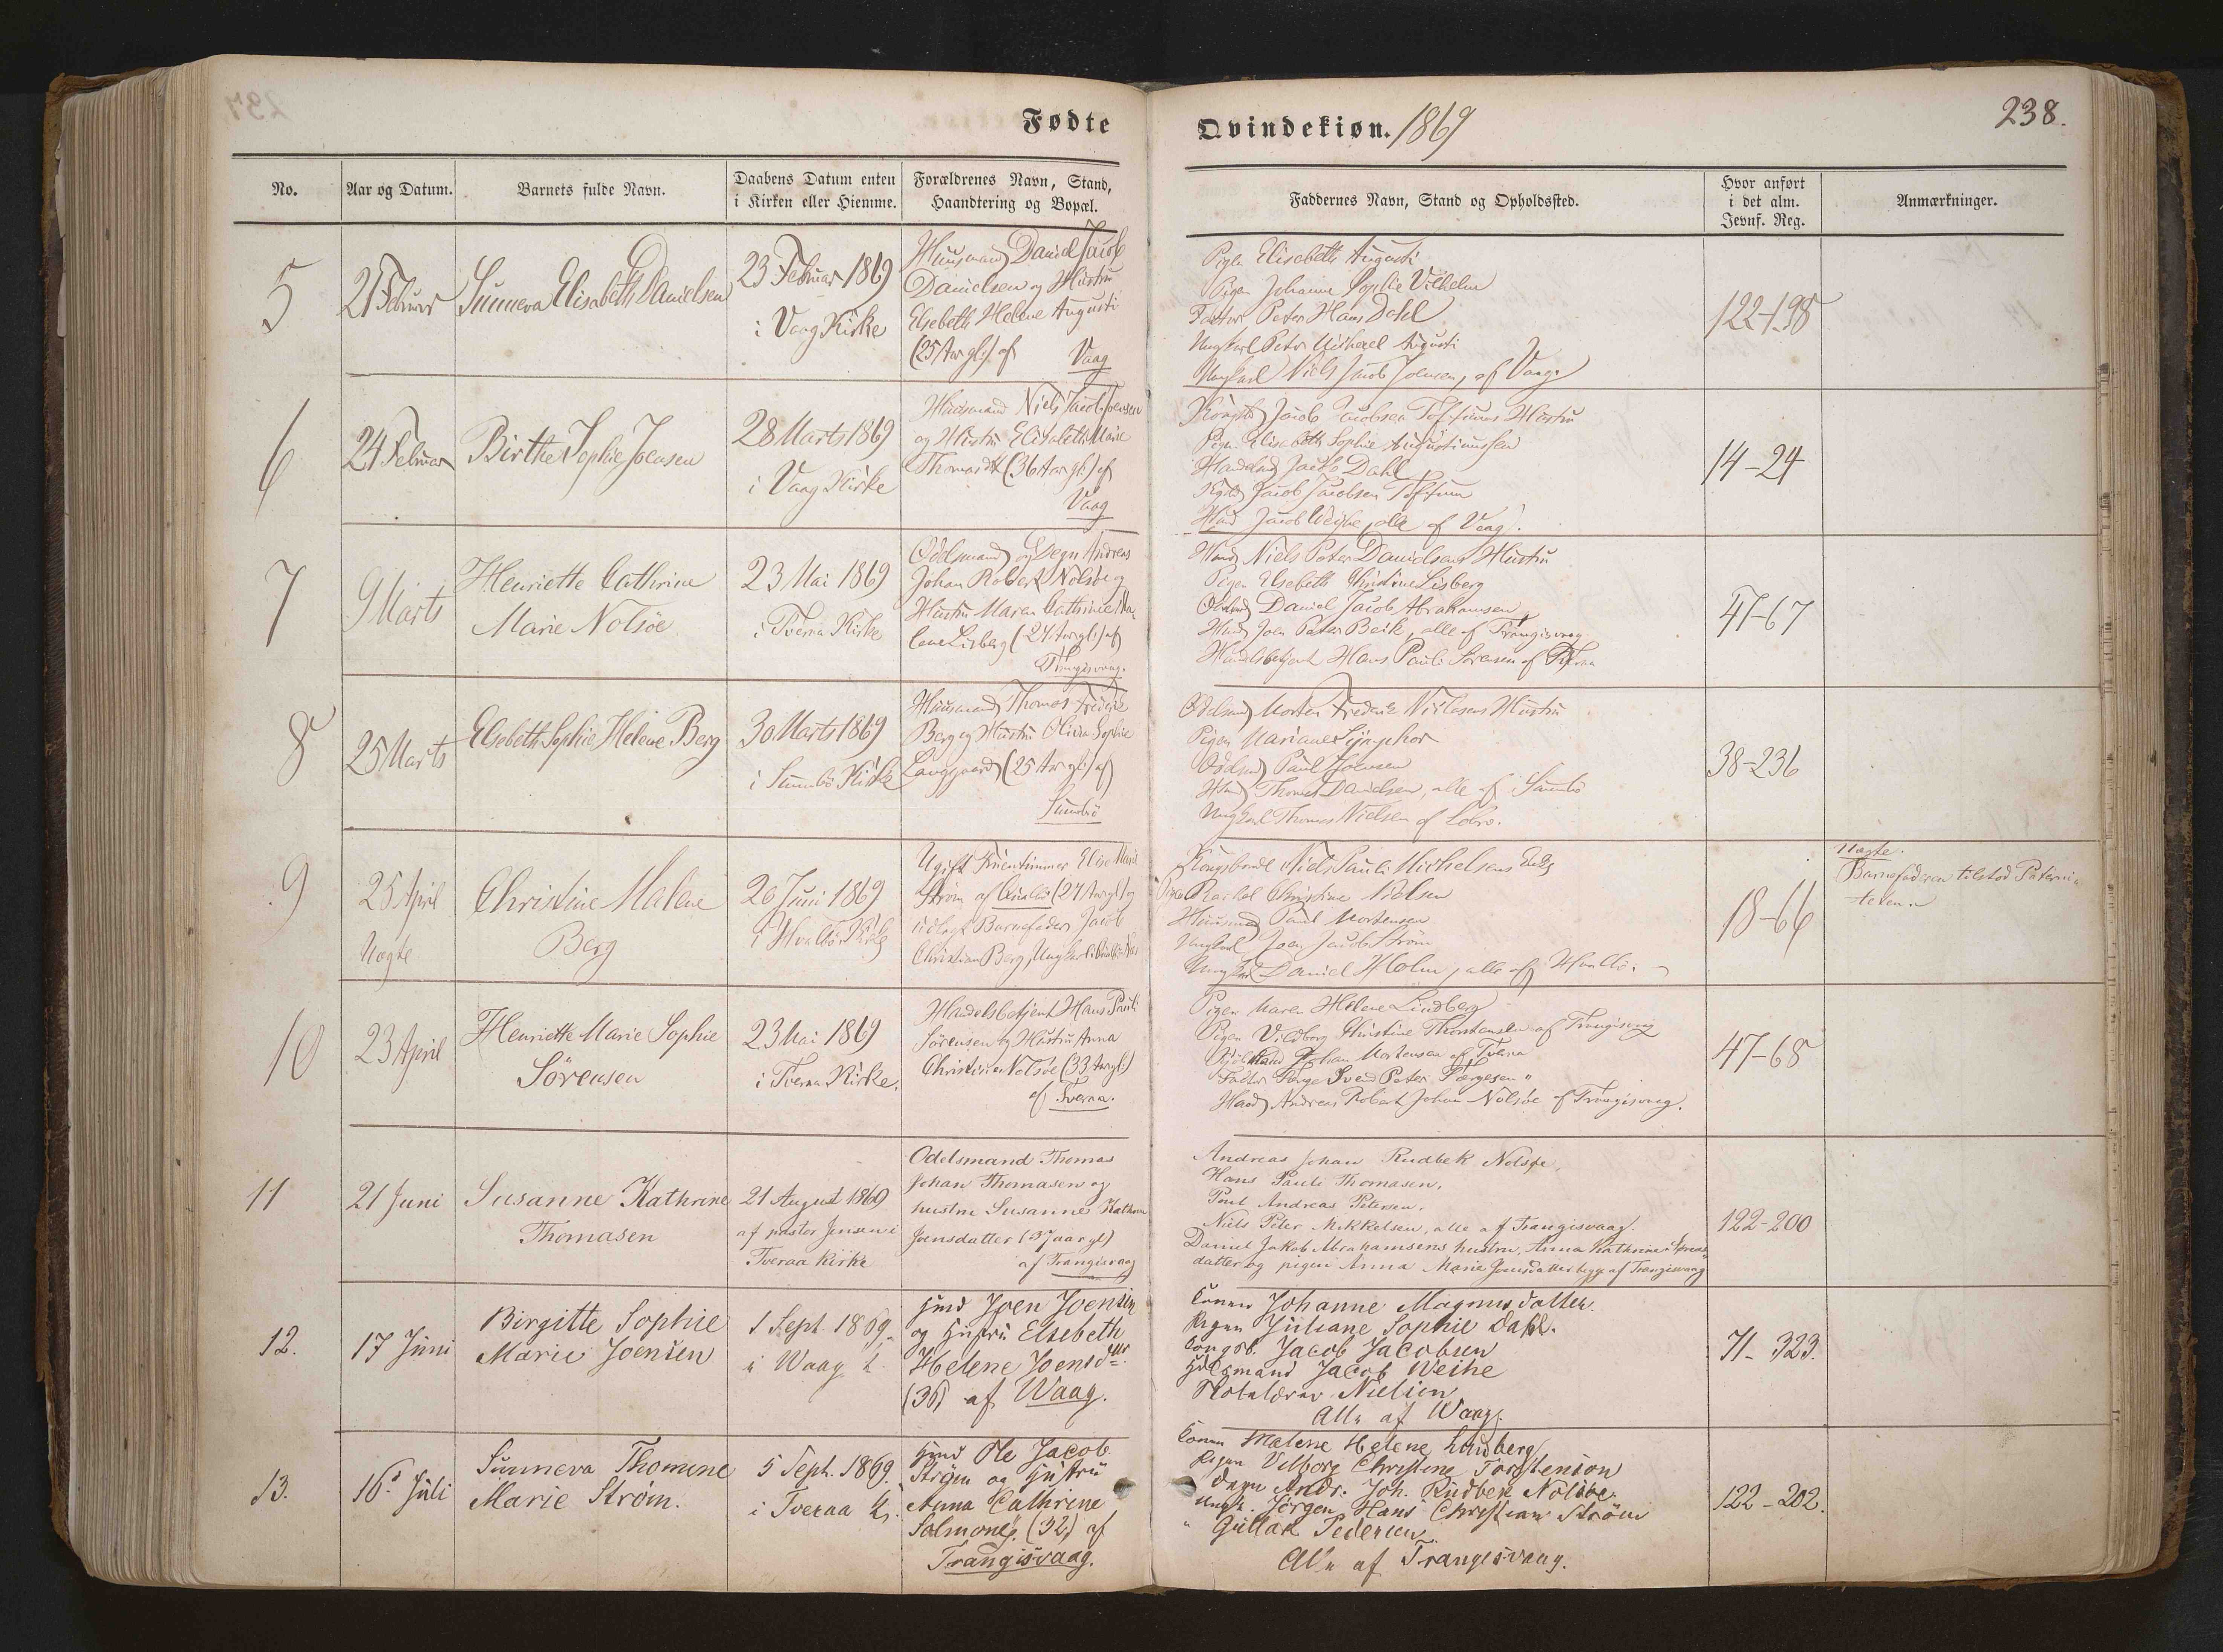 Fødte
Qvindekiøn. 1869
238.
No.
Aar og Datum.
Barnets fulde Navn.
Daabens Datum enten
i Kirken eller Hiemme.
Forældrenes Navn, Stand,
Haandtering og Bopæl.
Faddernes Navn, Stand og Opholdssted.
Hvor anført
i det alm.
Jevnf. Reg.
Anmærkninger.
5
21 Februar
Sunneva Elisabeth Danielsen
23 Februar 1869
i Vaag Kirke
Huusmand Daniel Jacob
Danielsen og Hustru
Elsebeth Helene Augusti
(25 Aar gl:) af
Vaag
Pigen Elisabeth Augusti
Pigen Johanne Sophie Vilhelm
Factor Peter Hans Dahl
Ungkarl Peter Michael Augusti
Ungkarl Niels Jacob Joensen, af Vaag.
122-198
6
24 Februar
Birthe Sophie Joensen
28 Marts 1869
i Vaag Kirke
Huusmand Niels Jacob Joensen
og Hustru Elisabeth Marie
Thomasdtt (36 Aar gl:) af
Vaag
Jacob Jacobsen Toftums Hustru
Pigen Elisabeth Sophie Augustinussen
Dahl
Jacob Jacobsen Toftum
Jacob Weihe, alle af Vaag.
14-24
7
9 Marts
Henriette Cathrine
Marie Nolsöe
23 Mai 1869
i Tveraa Kirke
Odelsmand og Degn Andreas
Johan Robert Nolsöe og
Hustru Maren Cathrine Ma-
lene Lisberg (24 Aar gl:) af
Trangisvaag.
Niels Peter Danielsens Hustru
Pigen Elsebeth Christine Lisberg
Daniel Jacob Abrahamsen
Joen Peter Beck, alle af Trangisvaag
Handelsbetjent Hans Pauli Sörensen af Tveraa
47-67
8
25 Marts
Elsebeth Sophie Helene Berg
30 Marts 1869
i Sumbö Kirke
Huusmand Thomas Frederik
Berg og Hustru Olivia Sophie
Langgaard (25 Aar gl:) af
Sumbö
Odelsmd Morten Frederik Niclasens Hustru
Pigen Mariane
Odelsmd Paul Joensen
Thomas Danielsen, alle af Sumbö
Ungkarl Thomas Nielsen af Lobro.
38-236
9
25 April
Uægte
Christine Malene
Berg
26 Juni 1869
i Hvalbö Kirke
Ugift Fruentimmer Elise Marie
Ström af Hvalbö (24 Aar gl:) og
udlagt Barnefader, Jacob
Christian Berg, Ungkarl
Kongsbonde Niels Pauli Michelsens
Pigen Rachel Christine Nielsen
Huusmand Paul Mortensen
Ungkarl Joen Jacob Ström
Ungkarl Daniel Holm, alle af Hvalbö.
18-66
Uægte.
Barnefaderen tilstod Paterni-
teten.
10
23 April
Henriette Marie Sophie
Sörensen
23 Mai 1869
i Tveraa Kirke.
Handelsbetjent Hans Pauli
Sörensen og Hustru Anna
Christine Nolsöe (33 Aar gl:)
af Tveraa.
Pigen Maren Helene Lindberg
Pigen Vilborg Christine Thorstensen af Trangisvaag
Johan Mortensen af Tveraa
Factor Svend Peter Færgesen "
Andreas Robert Johan Nolsöe af Trangisvaag.
47-68
11
21 Juni
Susanne Kathrine
Thomasen
21 August 1869
af pastor Jensen i
Tveraa Kirke
Odelsmand Thomas
Johan Thomasen og
hustru Susanne Kathrine
Joensdatter (37 aar gl)
af Trangisvaag
Andreas Johan Rudbek Nolsøe,
Hans Pauli Thomasen,
Poul Andreas Petersen,
Niels Peter Mikkelsen, alle af Trangisvaag.
Daniel Jakob Abrahamsens hustru, Anna Kathrine
datter og pigen Anna Marie Joensdatter begge af Trangisvaag
122-200
12.
17 Juni
Birgitte Sophie
Marie Joensen
1 Sept. 1869.
i Waag K.
Hmd Joen Joensen
og Hustru Elsebeth
Helene Joensdtr
(36) af Waag.
Konen Johanne Magnusdatter.
Pigen Juliane Sophie Dahl.
Kongsb. Jacob Jacobsen
Jacob Weihe
Nielsen
Alle af Waag.
71-323.
13.
16 Juli
Sunneva Thomine
Marie Ström.
5 Sept. 1869.
i Tveraa K.
Hmd Ole Jacob
Ström og Hustru
Anna Cathrine
Salmons. (32) af
Trangisvaag.
Konen Malene Helene Lindberg
Pigen Vilborg Christine Torstenson
Degn Andr. Joh. Rudbek Nolsöe.
Ungk. Jörgen Hans Christian Ström
" Gullak Pedersen.
Alle af Trangisvaag.
122-202.